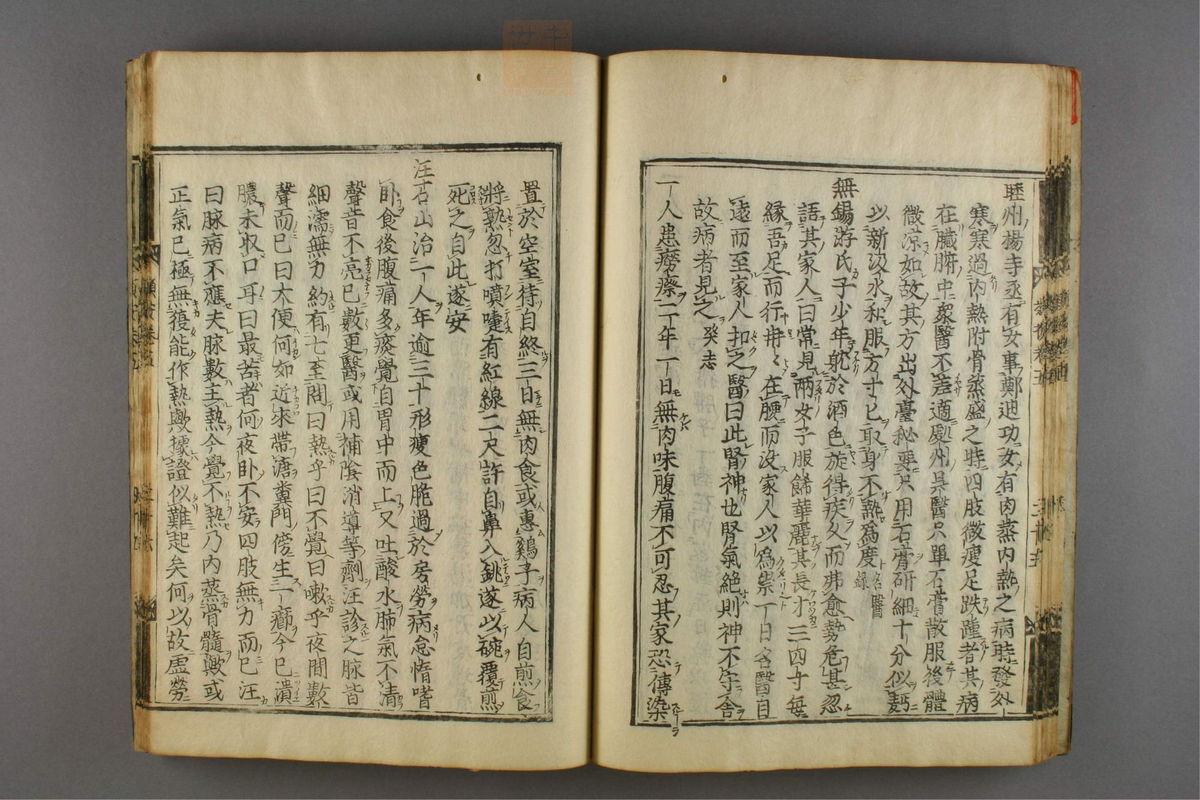 睦州楊寺丞有女事鄭迪功女有肉蒸内熱之病時發外
寒寒過内熱附骨蒸盛之時四肢微瘦足趺踵者其病
在臟腑中衆醫不差適處州呉醫只單石膏散服後體
微凉如故其方出外臺秘要只用石膏研細十分似麪
以新汲水和服方寸匕取身不熱爲度 名醫錄
無錫游氏子少年躭於酒色旋得疾久而弗愈勢危甚忽
語其家人曰常見兩女子服餙華麗其長才三四寸毎
緣吾足而行冉々在腰而没家人以爲祟一日名醫自
遠而至家人扣之醫曰此腎神也腎氣絶則神不守舎
故病者見之 癸志
一人患癆瘵二年一日無肉味腹痛不可忍其家恐傳染
置於空室待自終三日無肉食或惠鷄子病人自煎食
將熟忽打噴嚏有紅線二尺許自鼻入銚遂以碗覆煎
死之自此遂安
汪石山治一人年逾三十形瘦色脆過於房勞病怠惰嗜
卧食後腹痛多痰覺自胃中而上又吐酸水肺氣不清
聲音不亮已數更醫或用補陰消導等劑汪診之脉皆
細濡無力約有七至問曰熱乎曰不覺曰嗽乎夜間數
聲而已曰大便何如近來帶溏糞門傍生一癤今已潰
膿未収口耳曰最苦者何夜卧不安四肢無力而已汪
曰脉病不應夫脉數主熱今覺不熱乃内蒸骨髓歟或
正氣已極無復能作熱歟據證似難起矣何以故虛勞